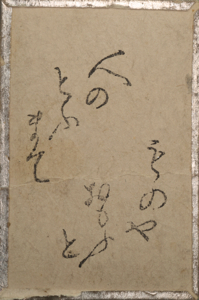 ものや
おもふと
人の
とふ
まで